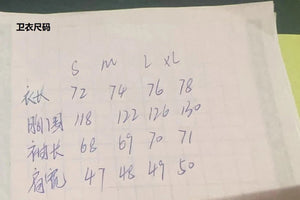 卫衣尺码
S M L XL
衣长 72 74 76 78
胸围 118 122 126 130
袖长 68 69 70 71
肩宽 47 48 49 50